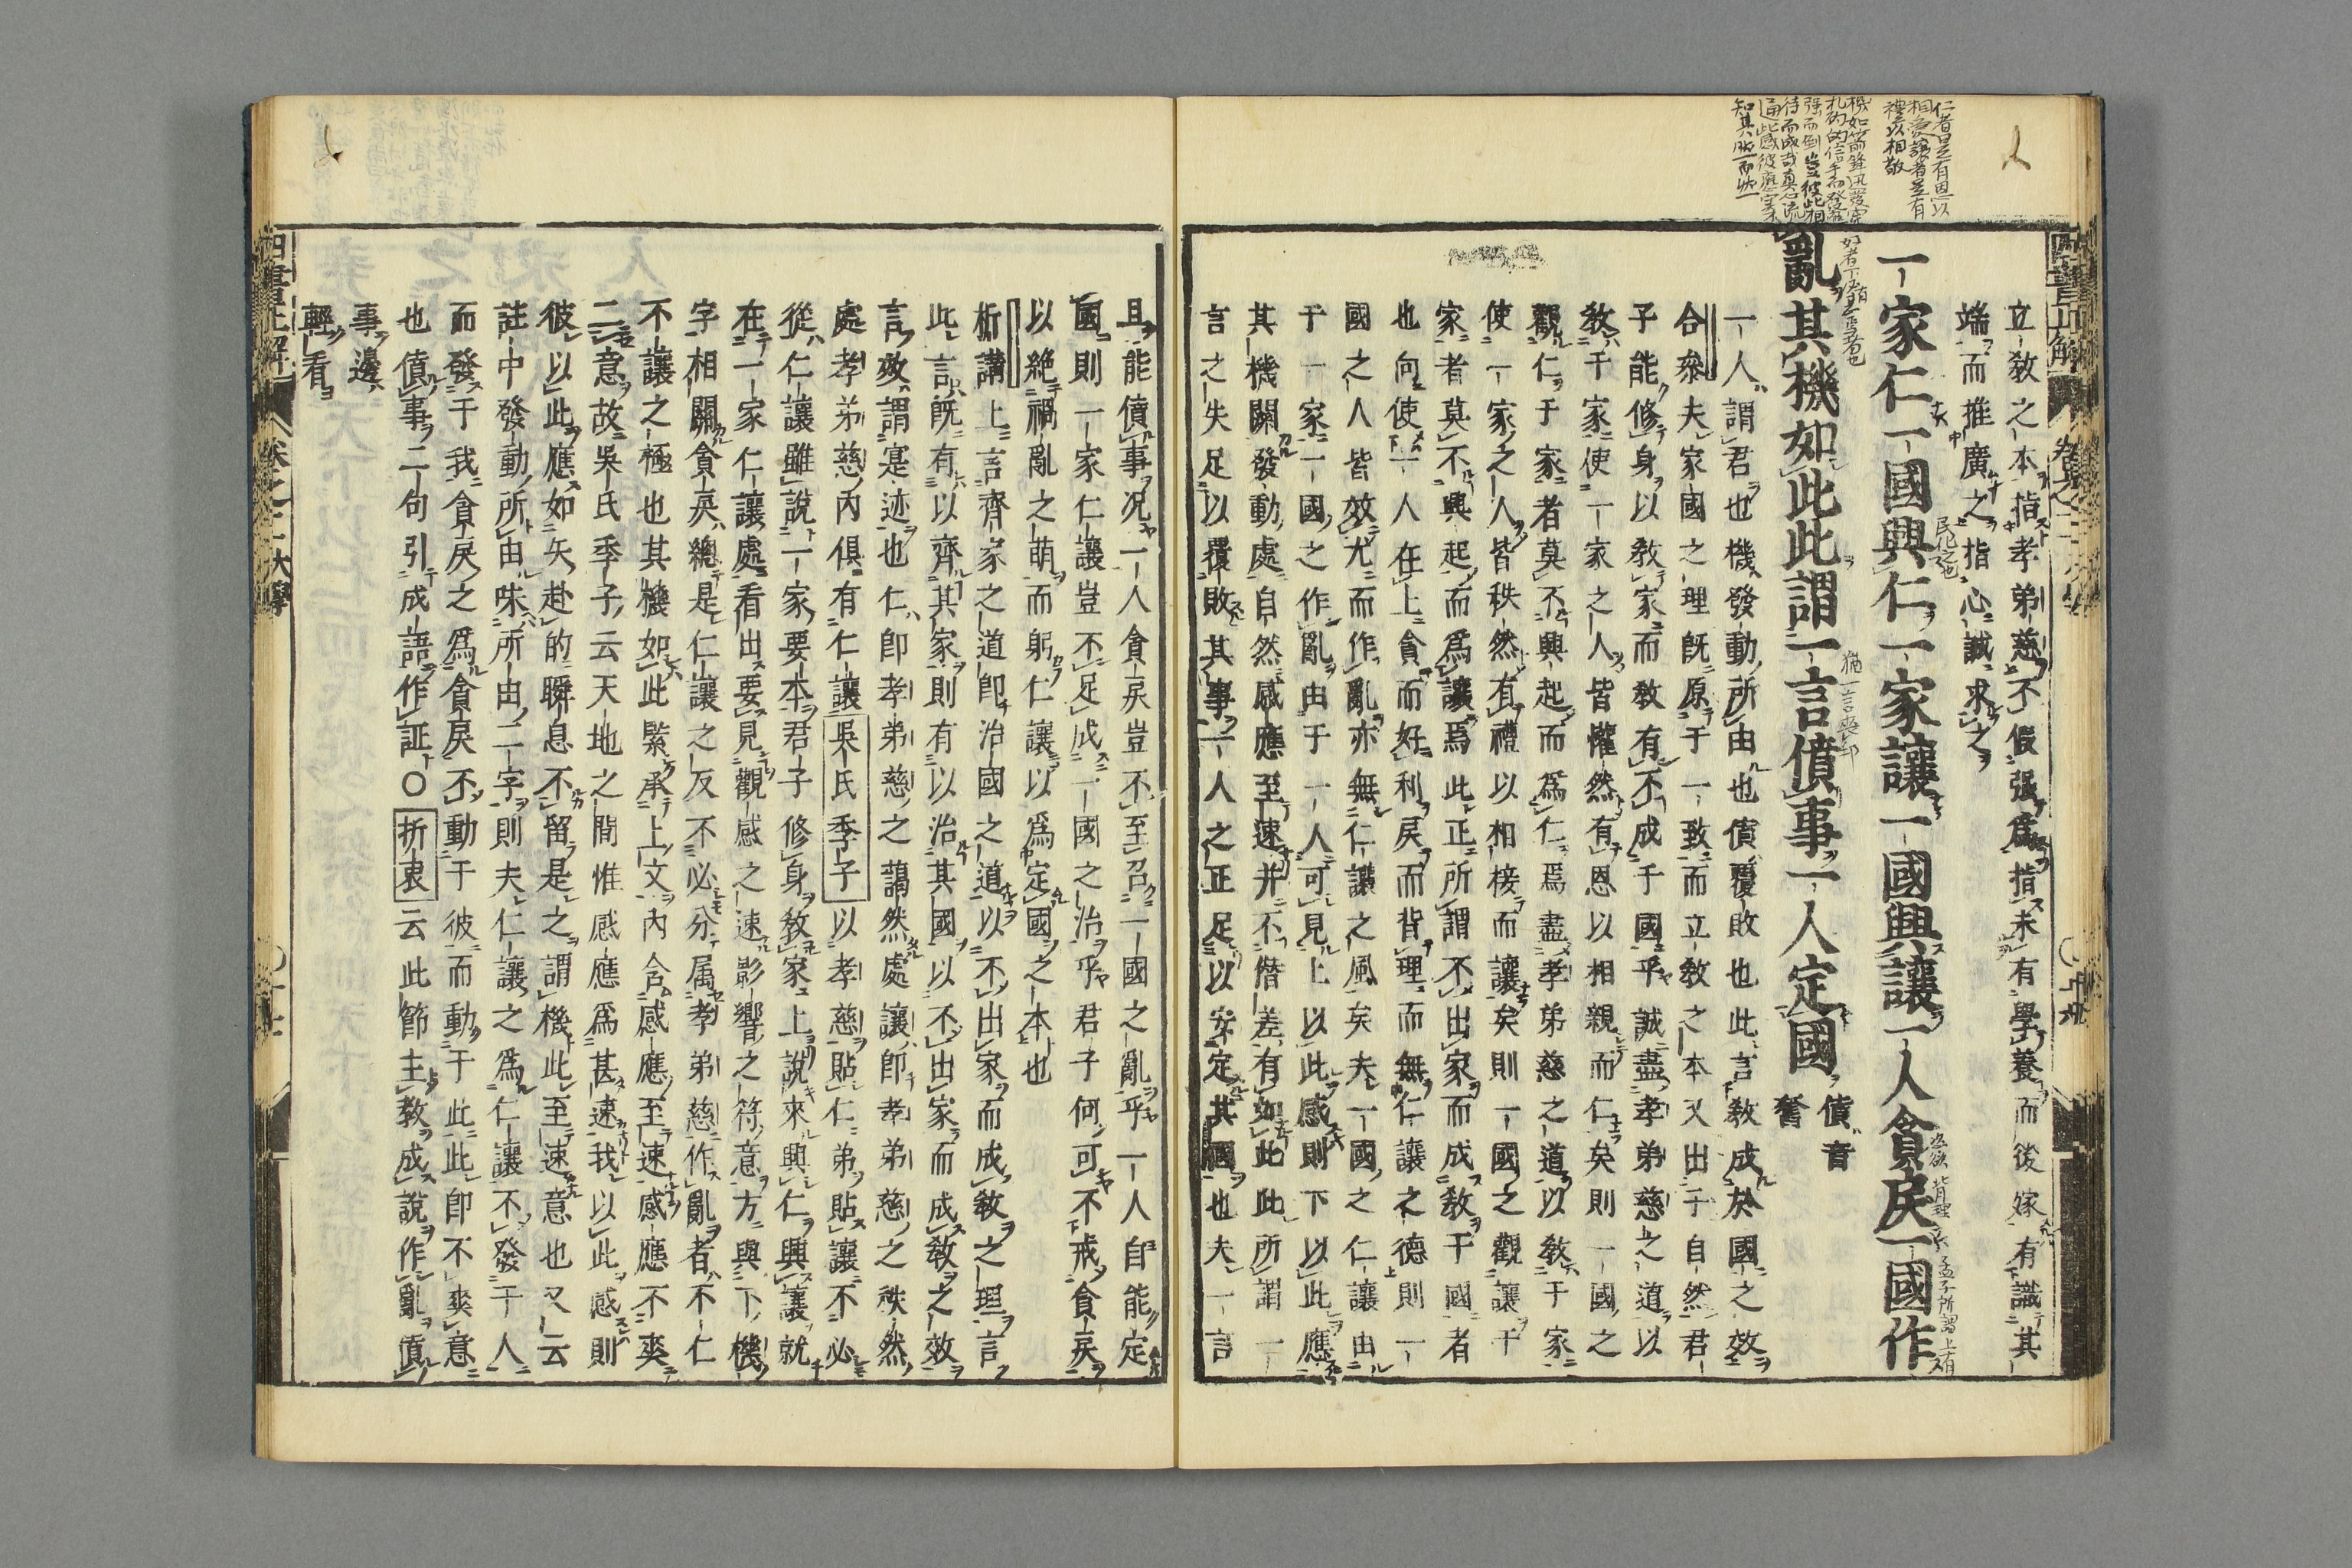 立教之本指孝弟慈不假强爲指未有學養而後嫁有識其
端而推廣之指心誠求之
一家仁一國興仁一家讓一國興讓一人貪戾一國作
亂其機如此此謂一言僨事一人定國
僨音
奮
一人謂君也機發動所由也僨覆敗也此言敎成於國之效
合參夫家國之理既原于一致而立敎之本又出于自然君
子能修身以敎家而敎有不成于國乎誠盡孝弟慈之道以
敎于家使一家之人皆懽然有恩以相親而仁矣則一國之
觀仁于家者莫不興起而爲仁焉盡孝弟慈之道以敎于家
使一家之人皆秩然有禮以相接而讓矣則一國之觀讓于
家者莫不興起而爲讓焉此正所謂不出家而成敎于國者
也向使一人在上貪而好利戾而背理而無仁讓之德則一
國之人皆效尤而作亂亦無仁讓之風矣夫一國之仁讓由
于一家一國之作亂由于一人可見上以此感則下以此應
其機關發動處自然感應至速并不僭差有如此此所謂一
言之失足以覆敗其事一人之正足以安定其國也夫一言
且能僨事况一人貪戾豈不至召一國之亂乎一人自能定
國則一家仁讓豈不足成一國之治乎君子何可不戒貪戾
以絶禍亂之萌而躬仁讓以爲定國之本也
析講上言齊家之道卽治國之道以不出家而成敎之理言
此言既有以齊其家則有以治其國以不出家而成敎之效
言效謂寔迹也仁卽孝弟慈之藹然處讓卽孝弟慈之秩然
處孝弟慈內俱有仁讓吳氏季子以孝慈貼仁弟貼讓不必
從仁讓雖說一家要本君子修身敎家上說來興仁興讓就
在一家仁讓處看出要見觀感之速影響之符意方與下機
字相關貪戾總是仁讓之反不必分属孝弟慈作亂者不仁
不讓之極也其機如此緊承上文內含感應至速感應不爽
二意故吳氏季子云天地之間惟感應爲甚速我以此感則
彼以此應如矢赴的瞬息不留是之謂機此至速意也又云
註中發動所由味所由二字則夫仁讓之爲仁讓不發于人
而發于我貪戾之爲貪戾不動于彼而動于此此卽不爽意
也僨事二句引成語作証○折衷云此節主敎成說作亂僨
事邊
輕看